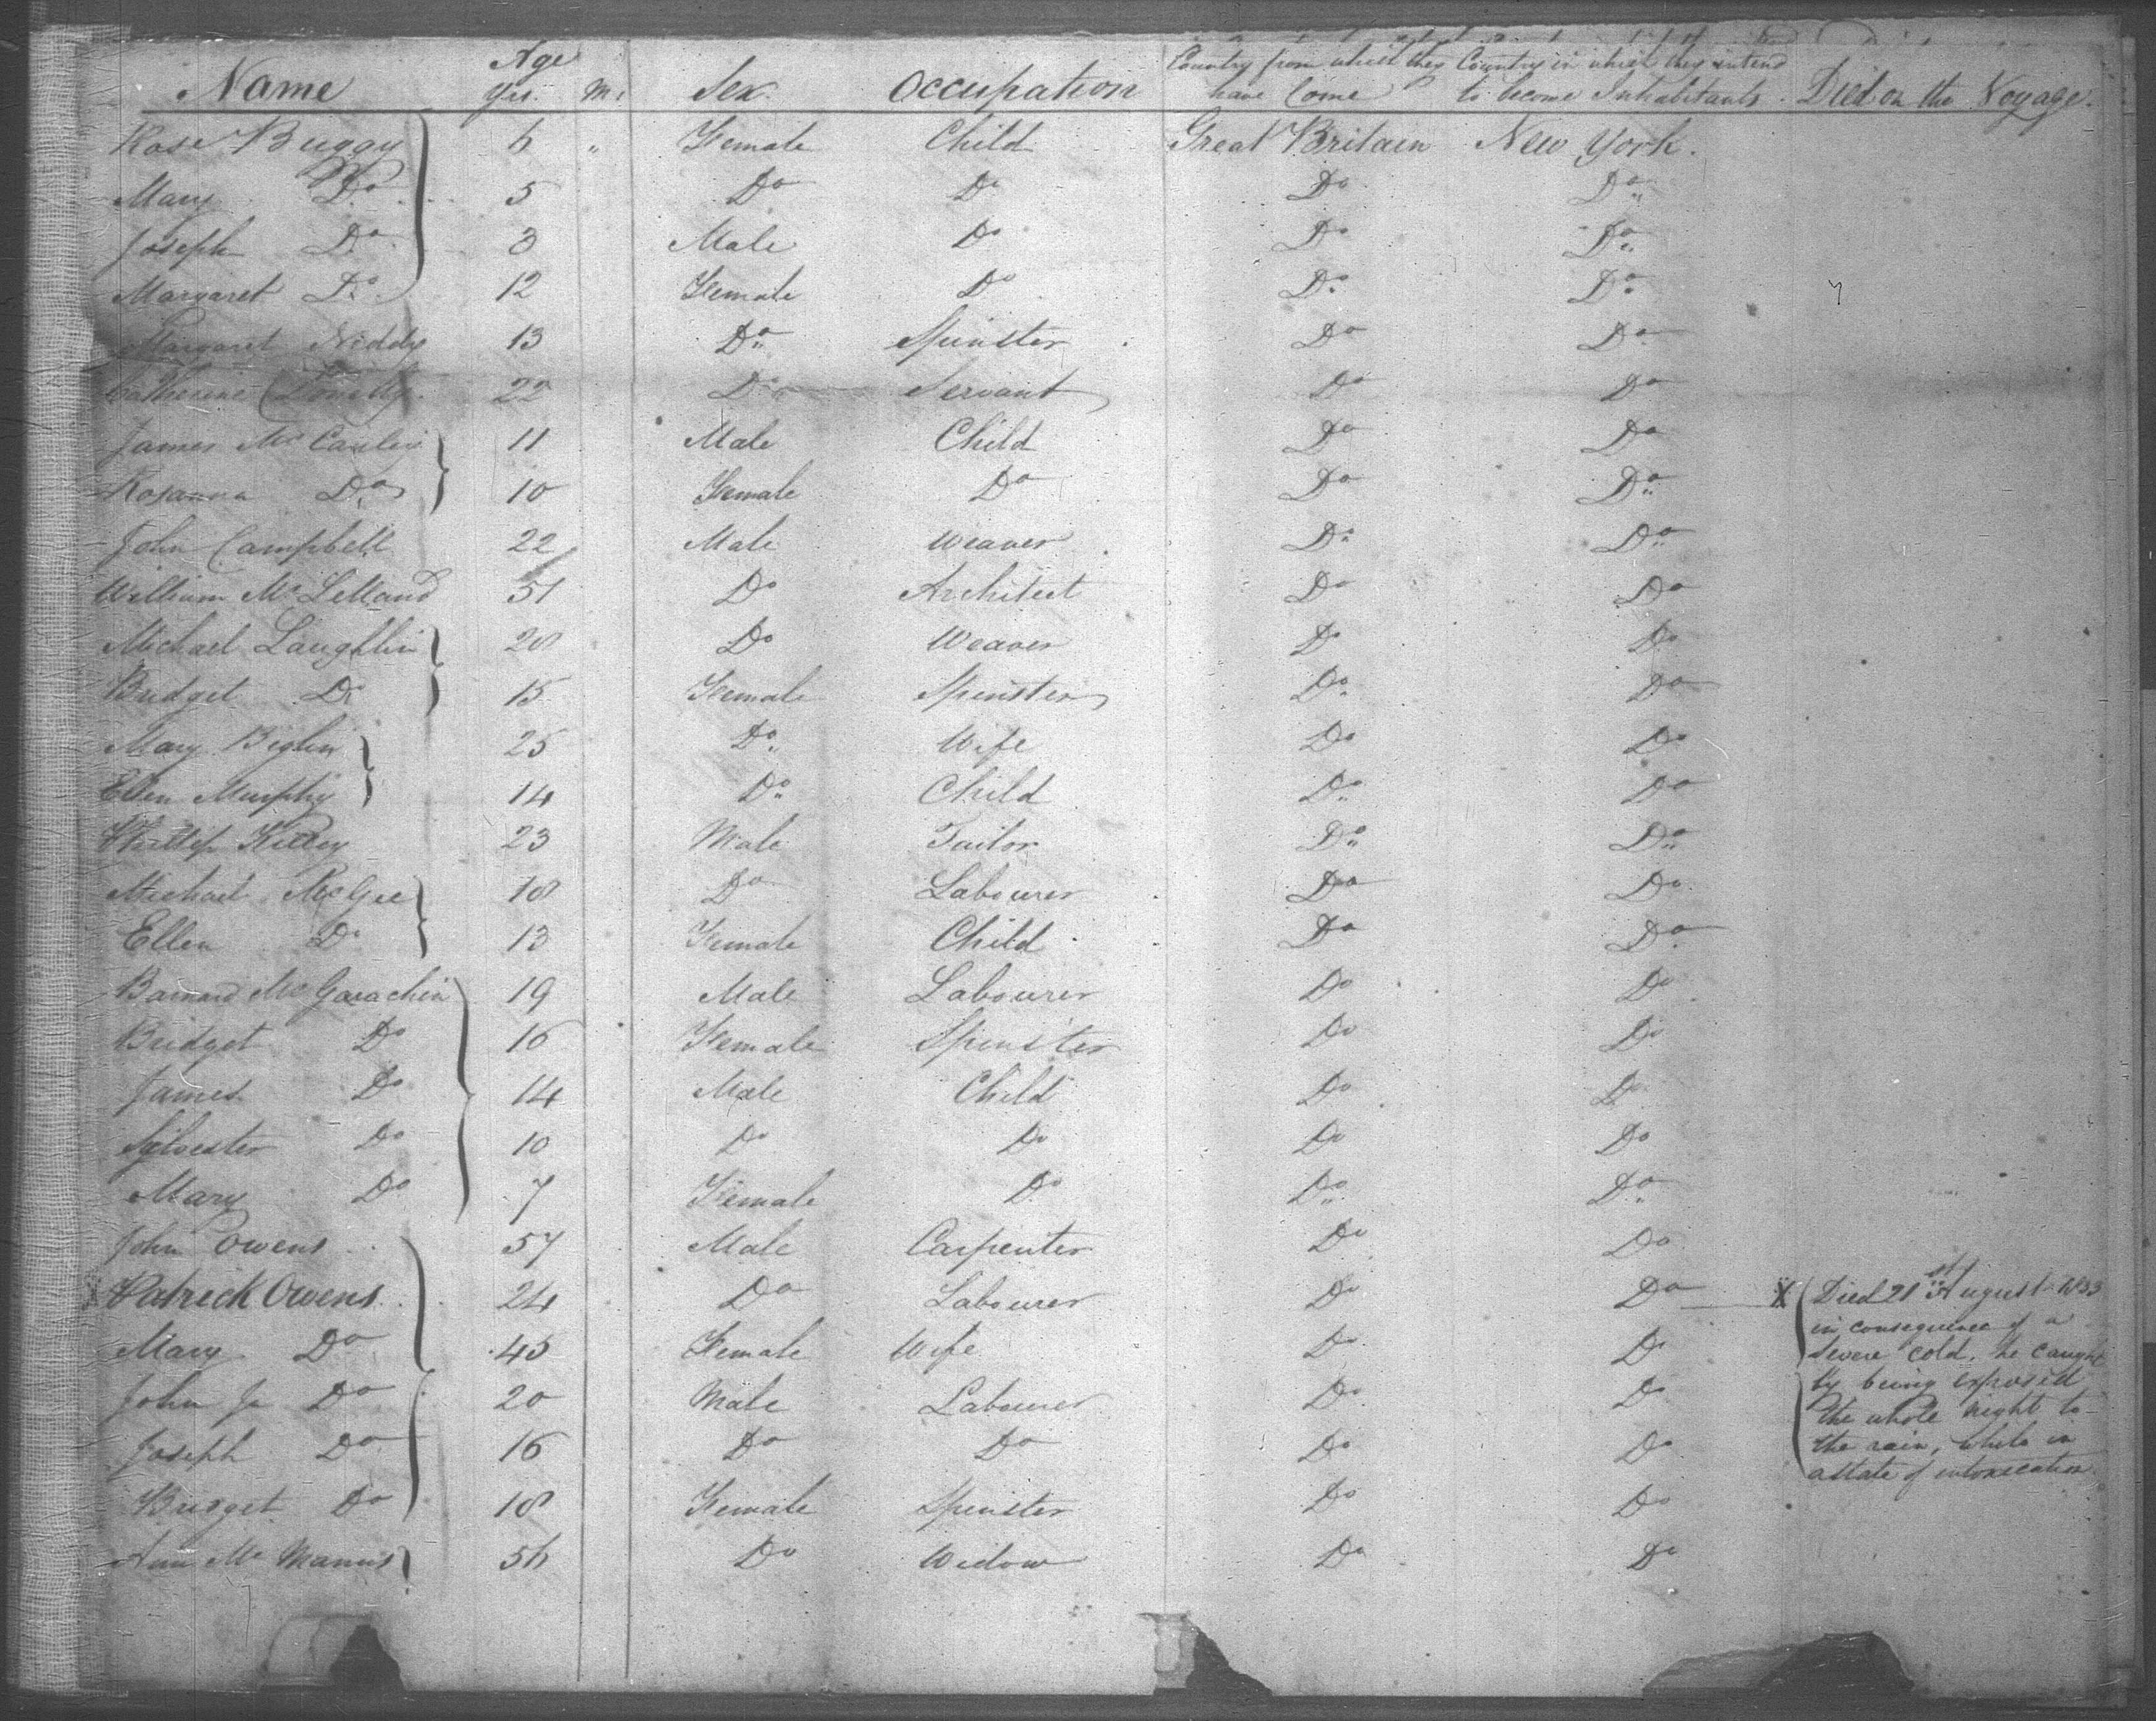 Name Age Yrs. M. Sex. Occupation Country from which they have Come Country in which they intend to become Inhabitants. Died on the Voyage.
Rose Buggy 6 " Female Child Great Britain New York.
Mary Do 5 Do Do Do Do
Joseph Do 3 Male Do Do Do
Margaret Do 12 Female Do Do Do
Margaret Niddy 13 Do Spinster Do Do
Catherine 22 Do Servant Do Do
James Mc Cauley 11 Male Child Do Do
Rosanna Do 10 Female Do Do Do
John Campbell 22 Male Weaver Do Do
William Mc Lelland 51 Do Architect Do Do
Michael Laughlin 28 Do Weaver Do Do
Bridget Do 15 Female Spinster Do Do
Mary Biglin 25 Do Wife Do Do
Ellen Murphy 14 Do Child Do Do
Phillip 23 Male Tailor Do Do
Michael McGee 18 Do Labourer Do Do
Ellen Do 13 Female Child Do Do
Barnard Mc Garachin 19 Male Labourer Do Do
Bridget Do 16 Female Spinster Do Do
James Do 14 Male Child Do Do
Sylvester Do 10 Do Do Do Do
Mary Do 7 Female Do Do Do
John Owens 57 Male Carpenter Do Do
X Patrick Owens 24 Do Labourer Do Do X Died 21st August 1833
Mary Do 45 Female Wife Do Do in consequence of a
severe cold, he caught
John Jr Do 20 Male Labourer Do Do by being exposed
the whole night to
Joseph Do 16 Do Do Do Do the rain, while in
a state of intoxication
Bridget Do 18 Female Spinster Do Do
Ann Mc Manus 56 Do Widow Do Do